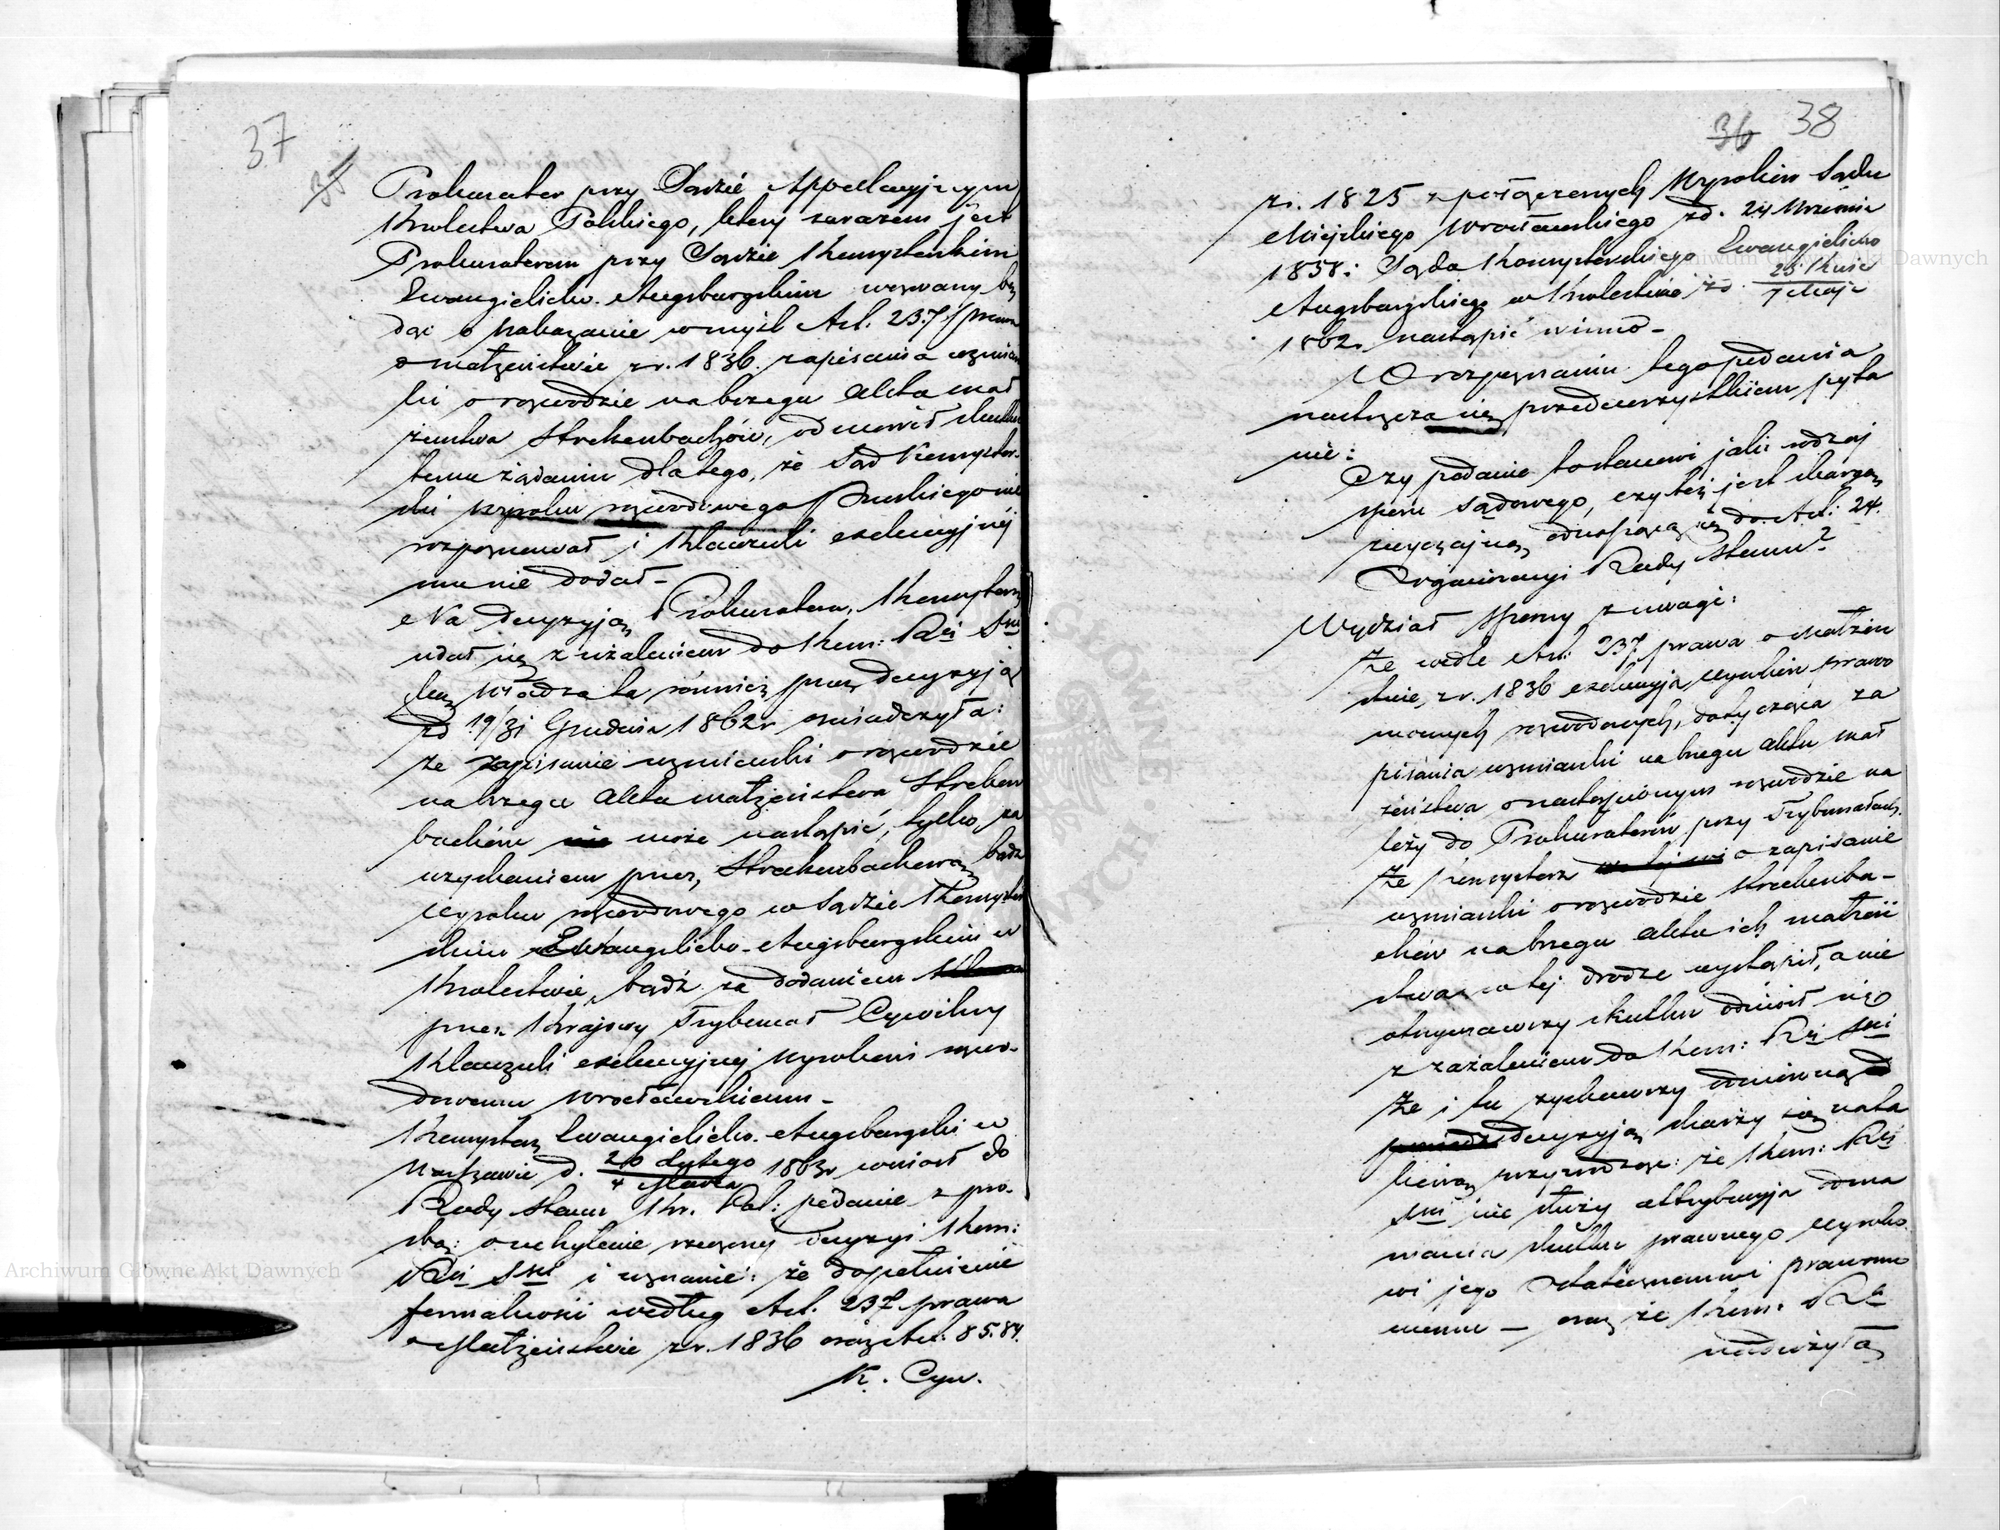 37
35
Prokurator przy Sądzie Appellacyjnym
Królestwa Polskiego, który zarazem jest
Prokuratorem przy Sądzie Konsystorskim
Ewangielicko-Augsburgskim wezwany bę
dąc o nakazanie w myśl Art. 237 prawa
o małżeństwie z r. 1836. zapisania wzmian
ki o rozwodzie na brzegu Akta mał
żeństwa Strekenbachów, odmówił skutku
temu żądaniu dlatego, że Sąd Konsystor-
ski wyroku rozwodowego Pruskiego nie
rozpoznawał i Klauzuli exekucyjnéj
mu nie dodał –
Na decyzyją Prokuratora, Konsystorz
udał się z użaleniem do Kom: Rzi Sści
lecz władza ta również przez decyzyją
zd 19/31 Grudnia 1862 r oświadczyła:
że zapisanie wzmianki o rozwodzie
na brzegu Akta małżeństwa Streken
bachów może nastąpić, tylko za
uzyskaniem przez Streckenbachową bądź
wyroku rozwodowego w Sądzie Konsystor
skim Ewangelicko-Augsburgskim w
Królestwie, bądź za dodaniem
przez Krajowy Trybunał Cywilny
Klauzuli exekucyjnej wyrokowi rozwo-
dowemu Wrocławskiemu –
Konsystorz Ewangielicko-Augsburgski w
Warszawie d. 20 Lutego / 4 Marca 1863 r wniósł do
Rady Stanu Kr. Pol: podanie z proś-
bą: o uchylenie rzeczonej decyzyi Kom:
Rzi Sści i uznanie: że dopełnienie
formalności według Art. 237 prawa
o Małżeństwie z r. 1836 oraz Art: 85.84.
K. Cyw.
36 38
z r. 1825 z połączonych Wyroków Sądu
Miejskiego Wrocławskiego zd. 24 Września
1858 i Sądu Konsystorskiego Ewangielicko
Augsburgskiego w Królestwie zd. 25 Kwie / 7 Maja
1862 r nastąpić winno –
W rozpoznaniu tego podania
nastręcza się przedewszystkiem pyta
nie:
Czy podanie to stanowi jaki rodzaj
sporu sądowego, czy też jest skargą
zwyczajną odnoszącą się do Art: 24.
Organizacyi Rady Stanu?
Wydział Sporny z uwagi:
że wedle Art: 237 prawa o Małżeń
stwie, z r. 1836 exekucyja wyroków prawo
mocnych rozwodowych, dotycząca za
pisania wzmianki na brzegu aktu mał
żeństwa o nastąpionym rozwodzie na
leży do Prokuratorów przy Trybunałach,
że Konsystorz o zapisanie
wzmianki o rozwodzie Streckenba-
chów na brzegu aktu ich małżeń
stwa w tej drodze wystąpił, a nie
otrzymawszy skutku odniósł się
z zażaleniem do Kom: Rzi Sści
że i tu zyskawszy odmowną
decyzyją skarży się na ta
kową przywodząc: że Kom: Rzi
Sści nie służy attrybucyja odma
wiania skutku prawnego wyroko
wi jego ostatecznemu i prawomo
cnemu – oraz że Kom: Rzi
nadużyła